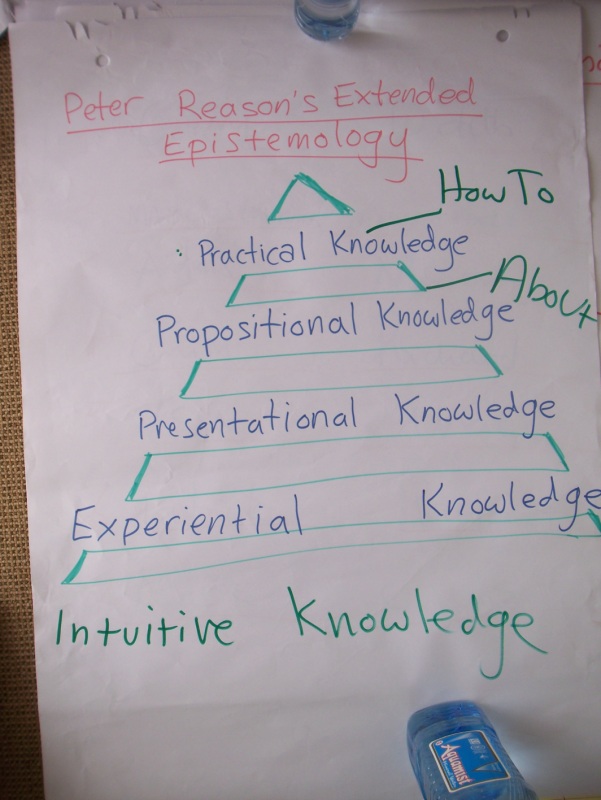 Peter Reason's Extended
Epistemology
How To
Practical Knowledge
About
Propositional Knowledge
Presentational Knowledge
Experiential Knowledge
Intuitive Knowledge
Aquamist